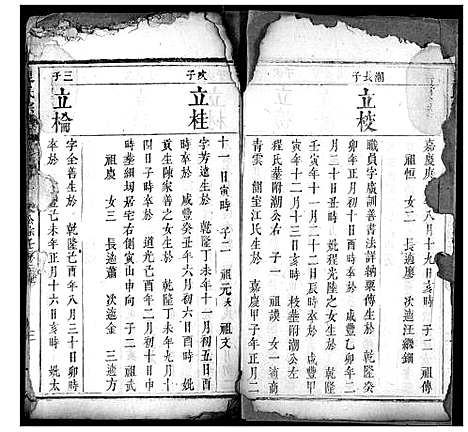 嘉慶 八月十九日亥時 子二 祖傳
祖恒 女二 長適廖 次適汪繼錮
潮長子
立校
職員字廣訓善書法詳納粟傳生於 乾隆癸
卯年正月初十日亥時卒於 咸豐乙卯年二
月二十日丑時 妣程光陸之女生於 乾隆
壬寅年十一月二十二日辰時卒於 咸豐甲
寅年十二月十三日寅時 枝葬附潮公左
程氏葬附潮公右 子一 祖謨 女一適商
青雲 側室江氏生於 嘉慶甲子年正月二
十一日寅時 子二 祖元 祖文
次子
立桂
字芳遠生於 乾隆丁未年十一月初五日酉
時卒於 咸豐癸丑年六月初六日酉時 妣
貢生陳家善之女生於 乾隆丁未年九月十
四日子時卒於 道光己酉年二月初六日子
時葬細坳居宅右側寅山申向 子二 祖武
祖慶 女三 長適蕭 次適金 三適方
三子
立棆
字金善生於 乾隆己酉年八月三十日卯時
卒於 己未年正月十六日亥時 妣太